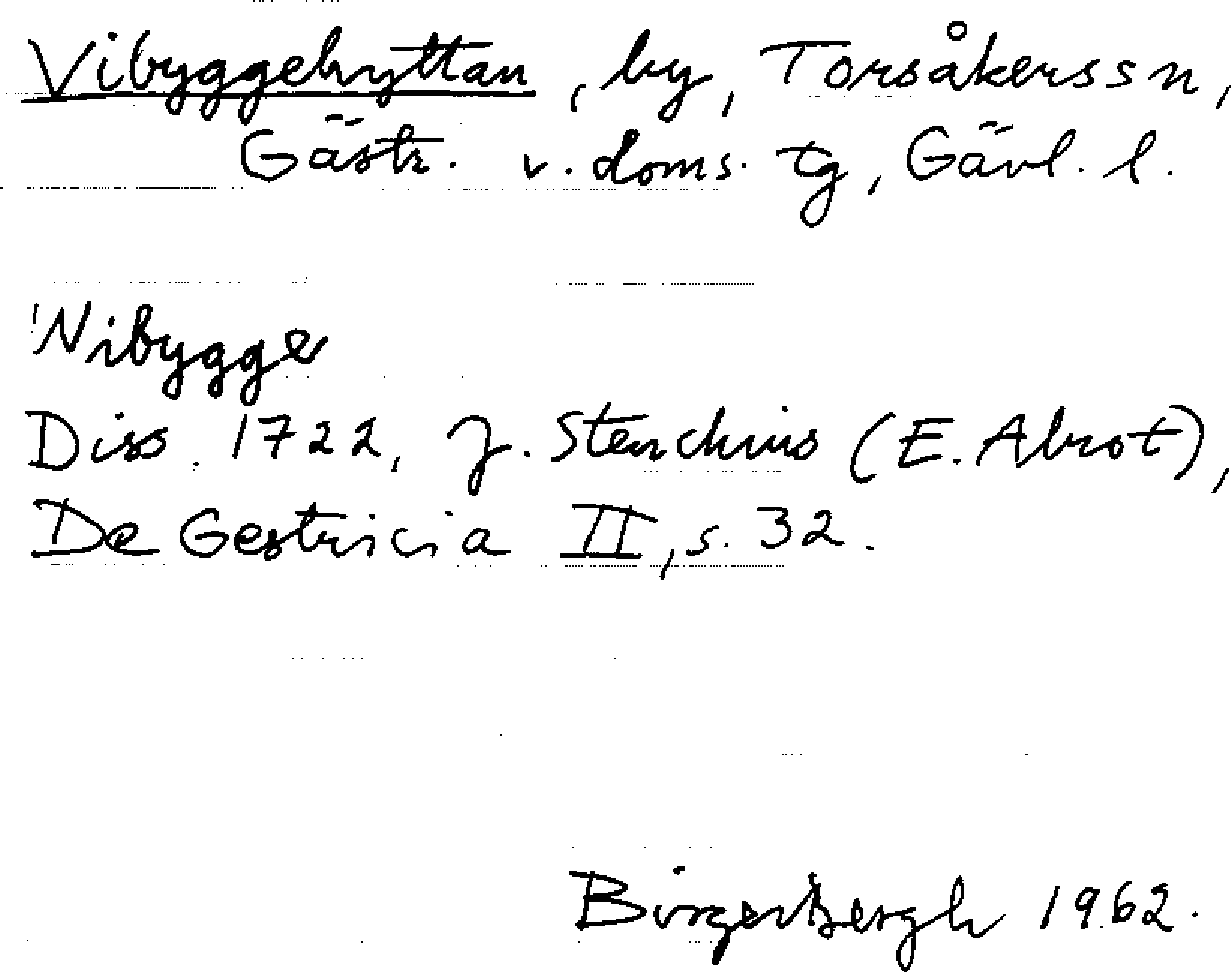 Vibyggehyttan, by, Torsåkers sn,
Gästr. v. doms. tg, Gävl. l.
Wibygge
Diss. 1722, J. Stenchius (E. Abrot),
De Gestricia II, s. 32.
Birger Bergh 1962.